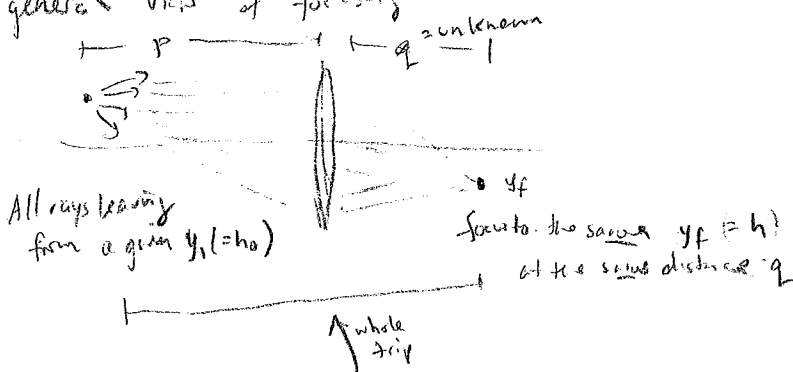 general view of focusing
p
q = unknown
All rays leaving
from a given y₁ (= h₀)
yf
focus to the same yf (= h)
at the same distance q
whole
trip